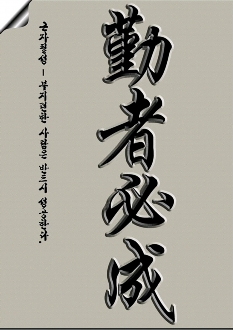 勤者必成
근자필성 - 부지런한 사람은 반드시 성공한다.